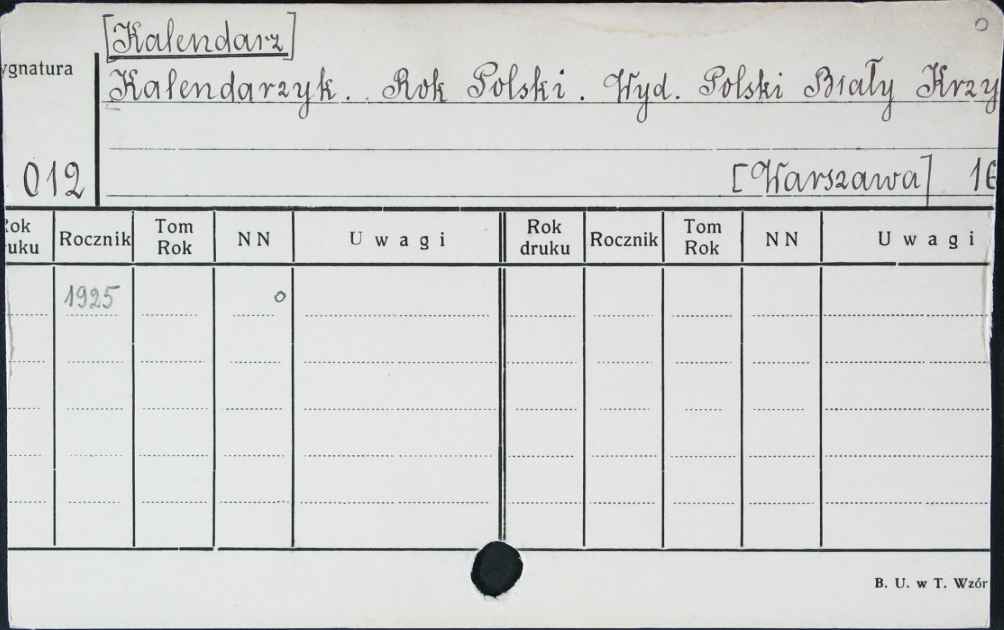 [Kalendarz]
ygnatura
Kalendarzyk. Rok Polski. Wyd. Polski Biały Krzy
012
[Warszawa] 16
ok
uku
Rocznik
Tom
Rok
N N
U w a g i
Rok
druku
Rocznik
Tom
Rok
N N
U w a g i
1925
o
B. U. w T. Wzór